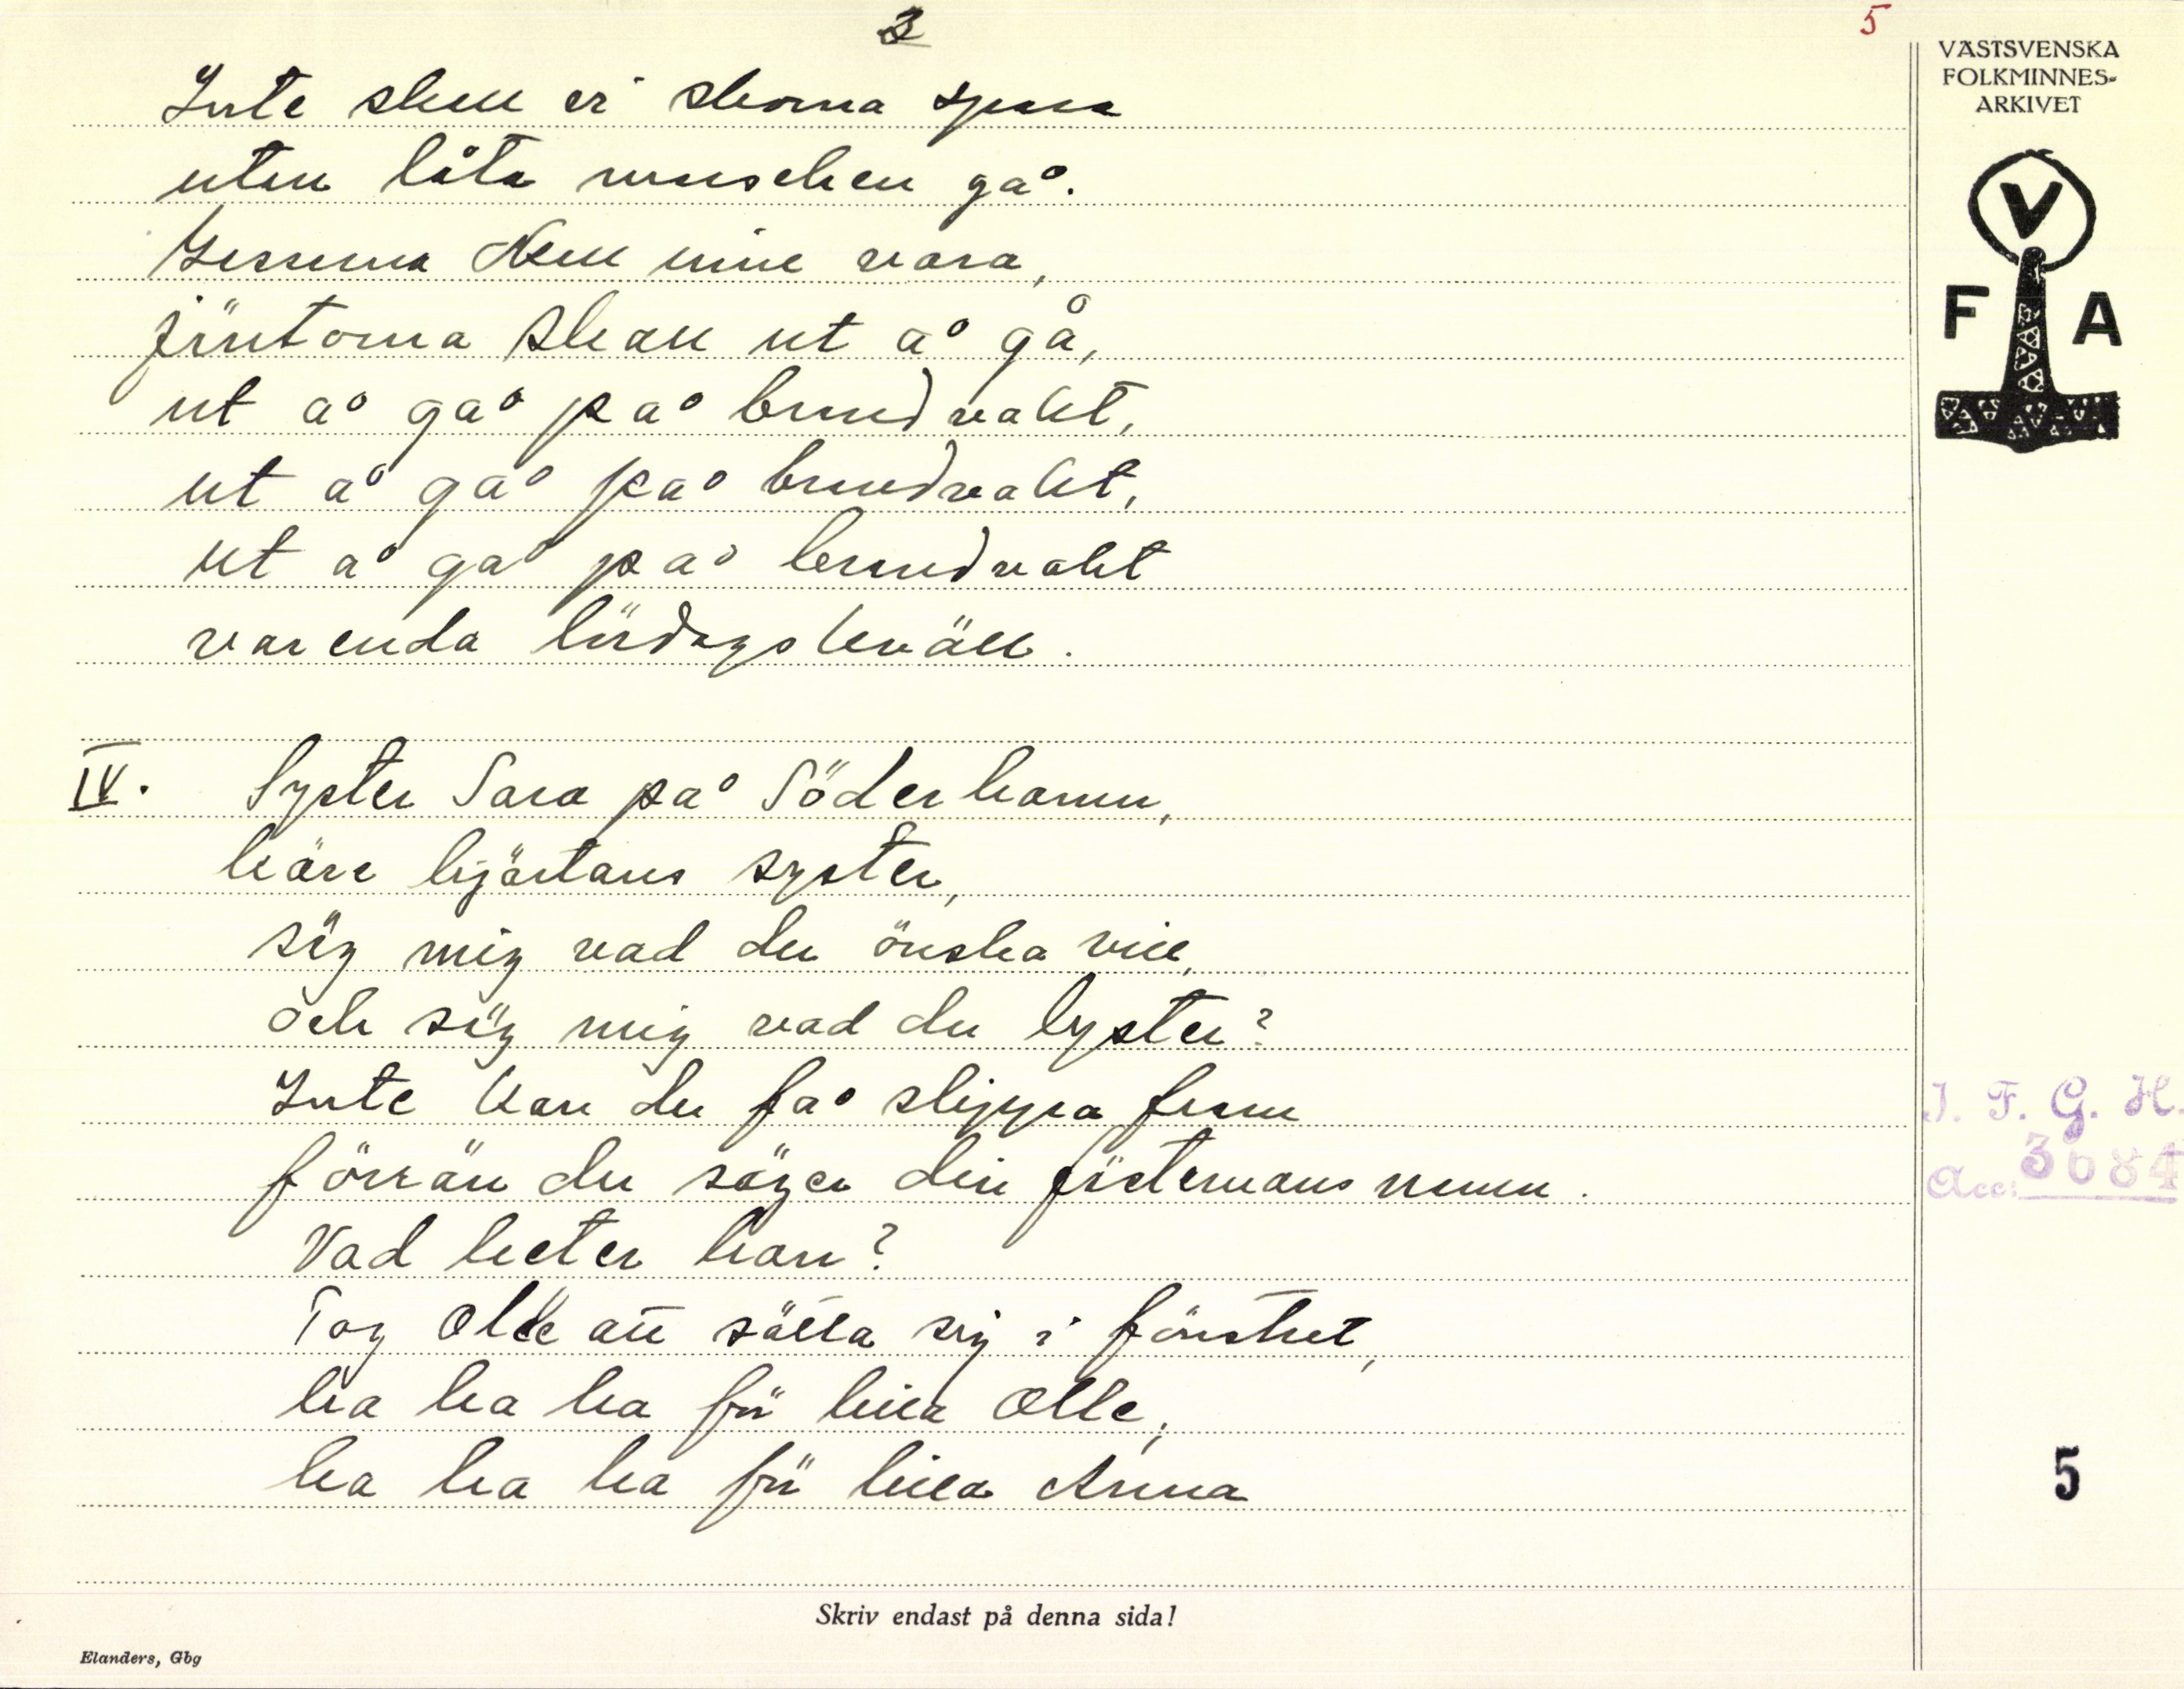 3
5
VÄSTSVENSKA
FOLKMINNES-
ARKIVET
V
F A
Inte skall vi skorna spara
utan låta munschen gå.
skall inne vara,
jäntorna skall ut å gå,
ut å gå på brudvakt,
ut å gå på brudvakt,
ut å gå på brudvakt
varenda lördagskväll.
IV. Syster Sara på Söderhamn,
kära hjärtans syster,
säg mig vad du önska vill,
och säg mig vad du lyster?
Inte kan du få slippa fram
förrän du säger din fästemans namn.
Vad heter han?
Tog Olle att sätta sig i fönstret,
ha ha ha för lilla Olle,
ha ha ha för lilla Anna
I. F. G. H.
Acc: 3684
5
Skriv endast på denna sida!
Elanders, Gbg